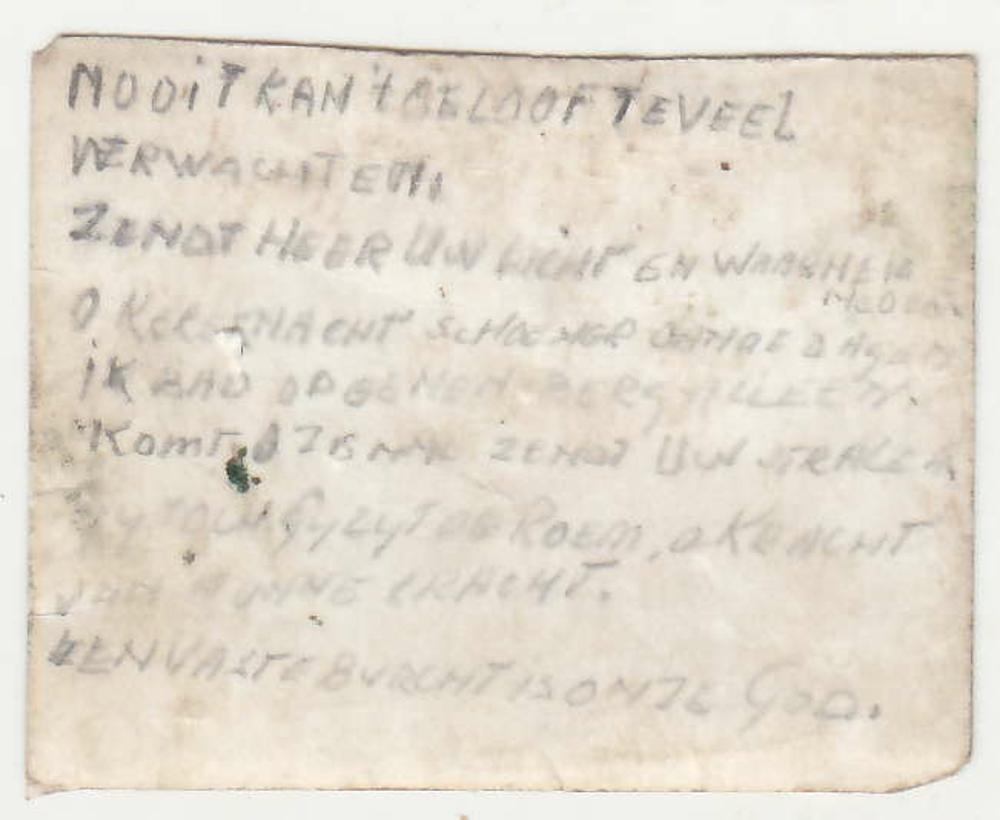 NOOIT KAN 't GELOOF TEVEEL
VERWACHTEN.
ZENDT HEER UW LICHT EN WAARHEID
NEDER.
O KERSTNACHT SCHOONER DAN DE DAGEN
IK BAD OP EENEN BERG ALLEEN.
KOMT ZENDT UW STRALEN
GY ZYT DE ROEM, O KRACHT
VAN KRACHT.
EEN VASTE BURCHT IS ONZE GOD.